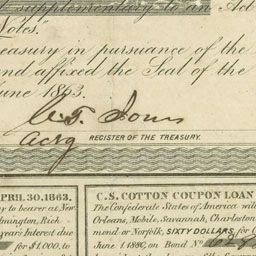 supplementary to an Act
Notes."
Treasury in pursuance of the
and affixed the Seal of the
June 1863.
C. T. Jones
actg REGISTER OF THE TREASURY.
APRIL 30, 1863.
to bearer at New
Wilmington, Rich
year's Interest due
for $1,000, to
C.S. COTTON COUPON LOAN
The Confederate States of America will
Orleans, Mobile, Savannah, Charleston
mond or Norfolk, SIXTY DOLLARS, for
June 1, 1880, on Bond No